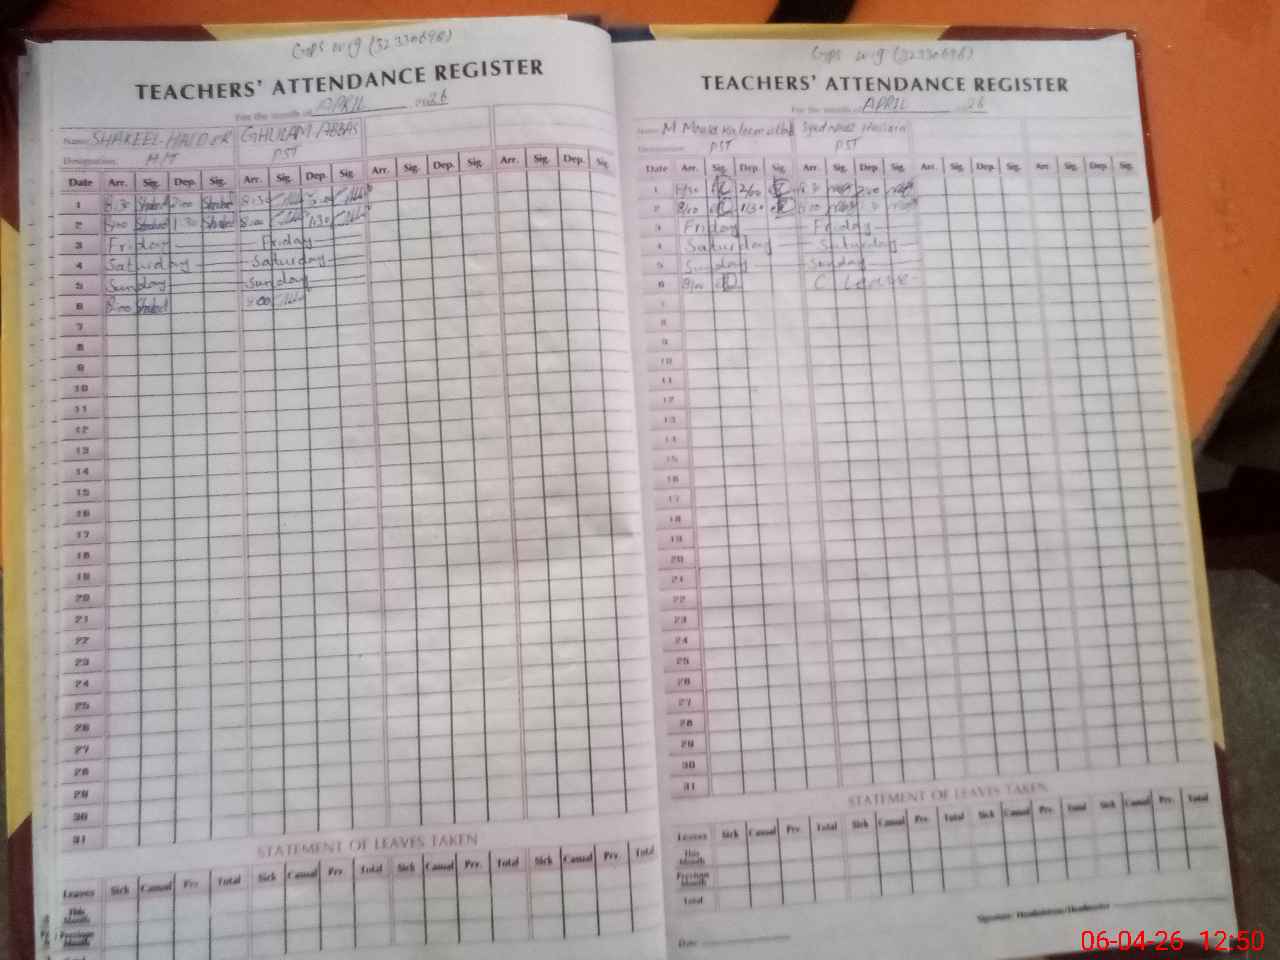 GPS wig (32330698)
TEACHERS' ATTENDANCE REGISTER
For the month of APRIL 2026
Name SHAKEEL HAIDER GHULAM ABBAS
Designation PST
Date Arr. Sig. Dep. Sig. Arr. Sig. Dep. Sig. Arr. Sig. Dep. Sig. Arr. Sig. Dep. Sig.
1 8:30 2:00 8:30 2:00
2 8:00 1:30 8:00 1:30
3 Friday Friday
4 Saturday Saturday
5 Sunday Sunday
6 8:00 8:00
7
8
9
10
11
12
13
14
15
16
17
18
19
20
21
22
23
24
25
26
27
28
29
30
31
STATEMENT OF LEAVES TAKEN
Leaves Sick Casual Prv. Total Sick Casual Prv. Total Sick Casual Prv. Total Sick Casual Prv. Total
This Month
Previous Month
Total
GPS wig (32330698)
TEACHERS' ATTENDANCE REGISTER
For the month of APRIL 26
Name Hussain
Designation PST PST
Date Arr. Sig. Dep. Sig. Arr. Sig. Dep. Sig. Arr. Sig. Dep. Sig. Arr. Sig. Dep. Sig.
1 8/30 2/00 2:00
2 8/00 1/30
3 Friday Friday
4 Saturday Saturday
5 Sunday Sunday
6 8/00 C Leave
7
8
9
10
11
12
13
14
15
16
17
18
19
20
21
22
23
24
25
26
27
28
29
30
31
STATEMENT OF LEAVES TAKEN
Leaves Sick Casual Prv. Total Sick Casual Prv. Total Sick Casual Prv. Total
This Month
Previous Month
Total
Signature Headmistress/Headmaster
Date
06-04-26 12:50